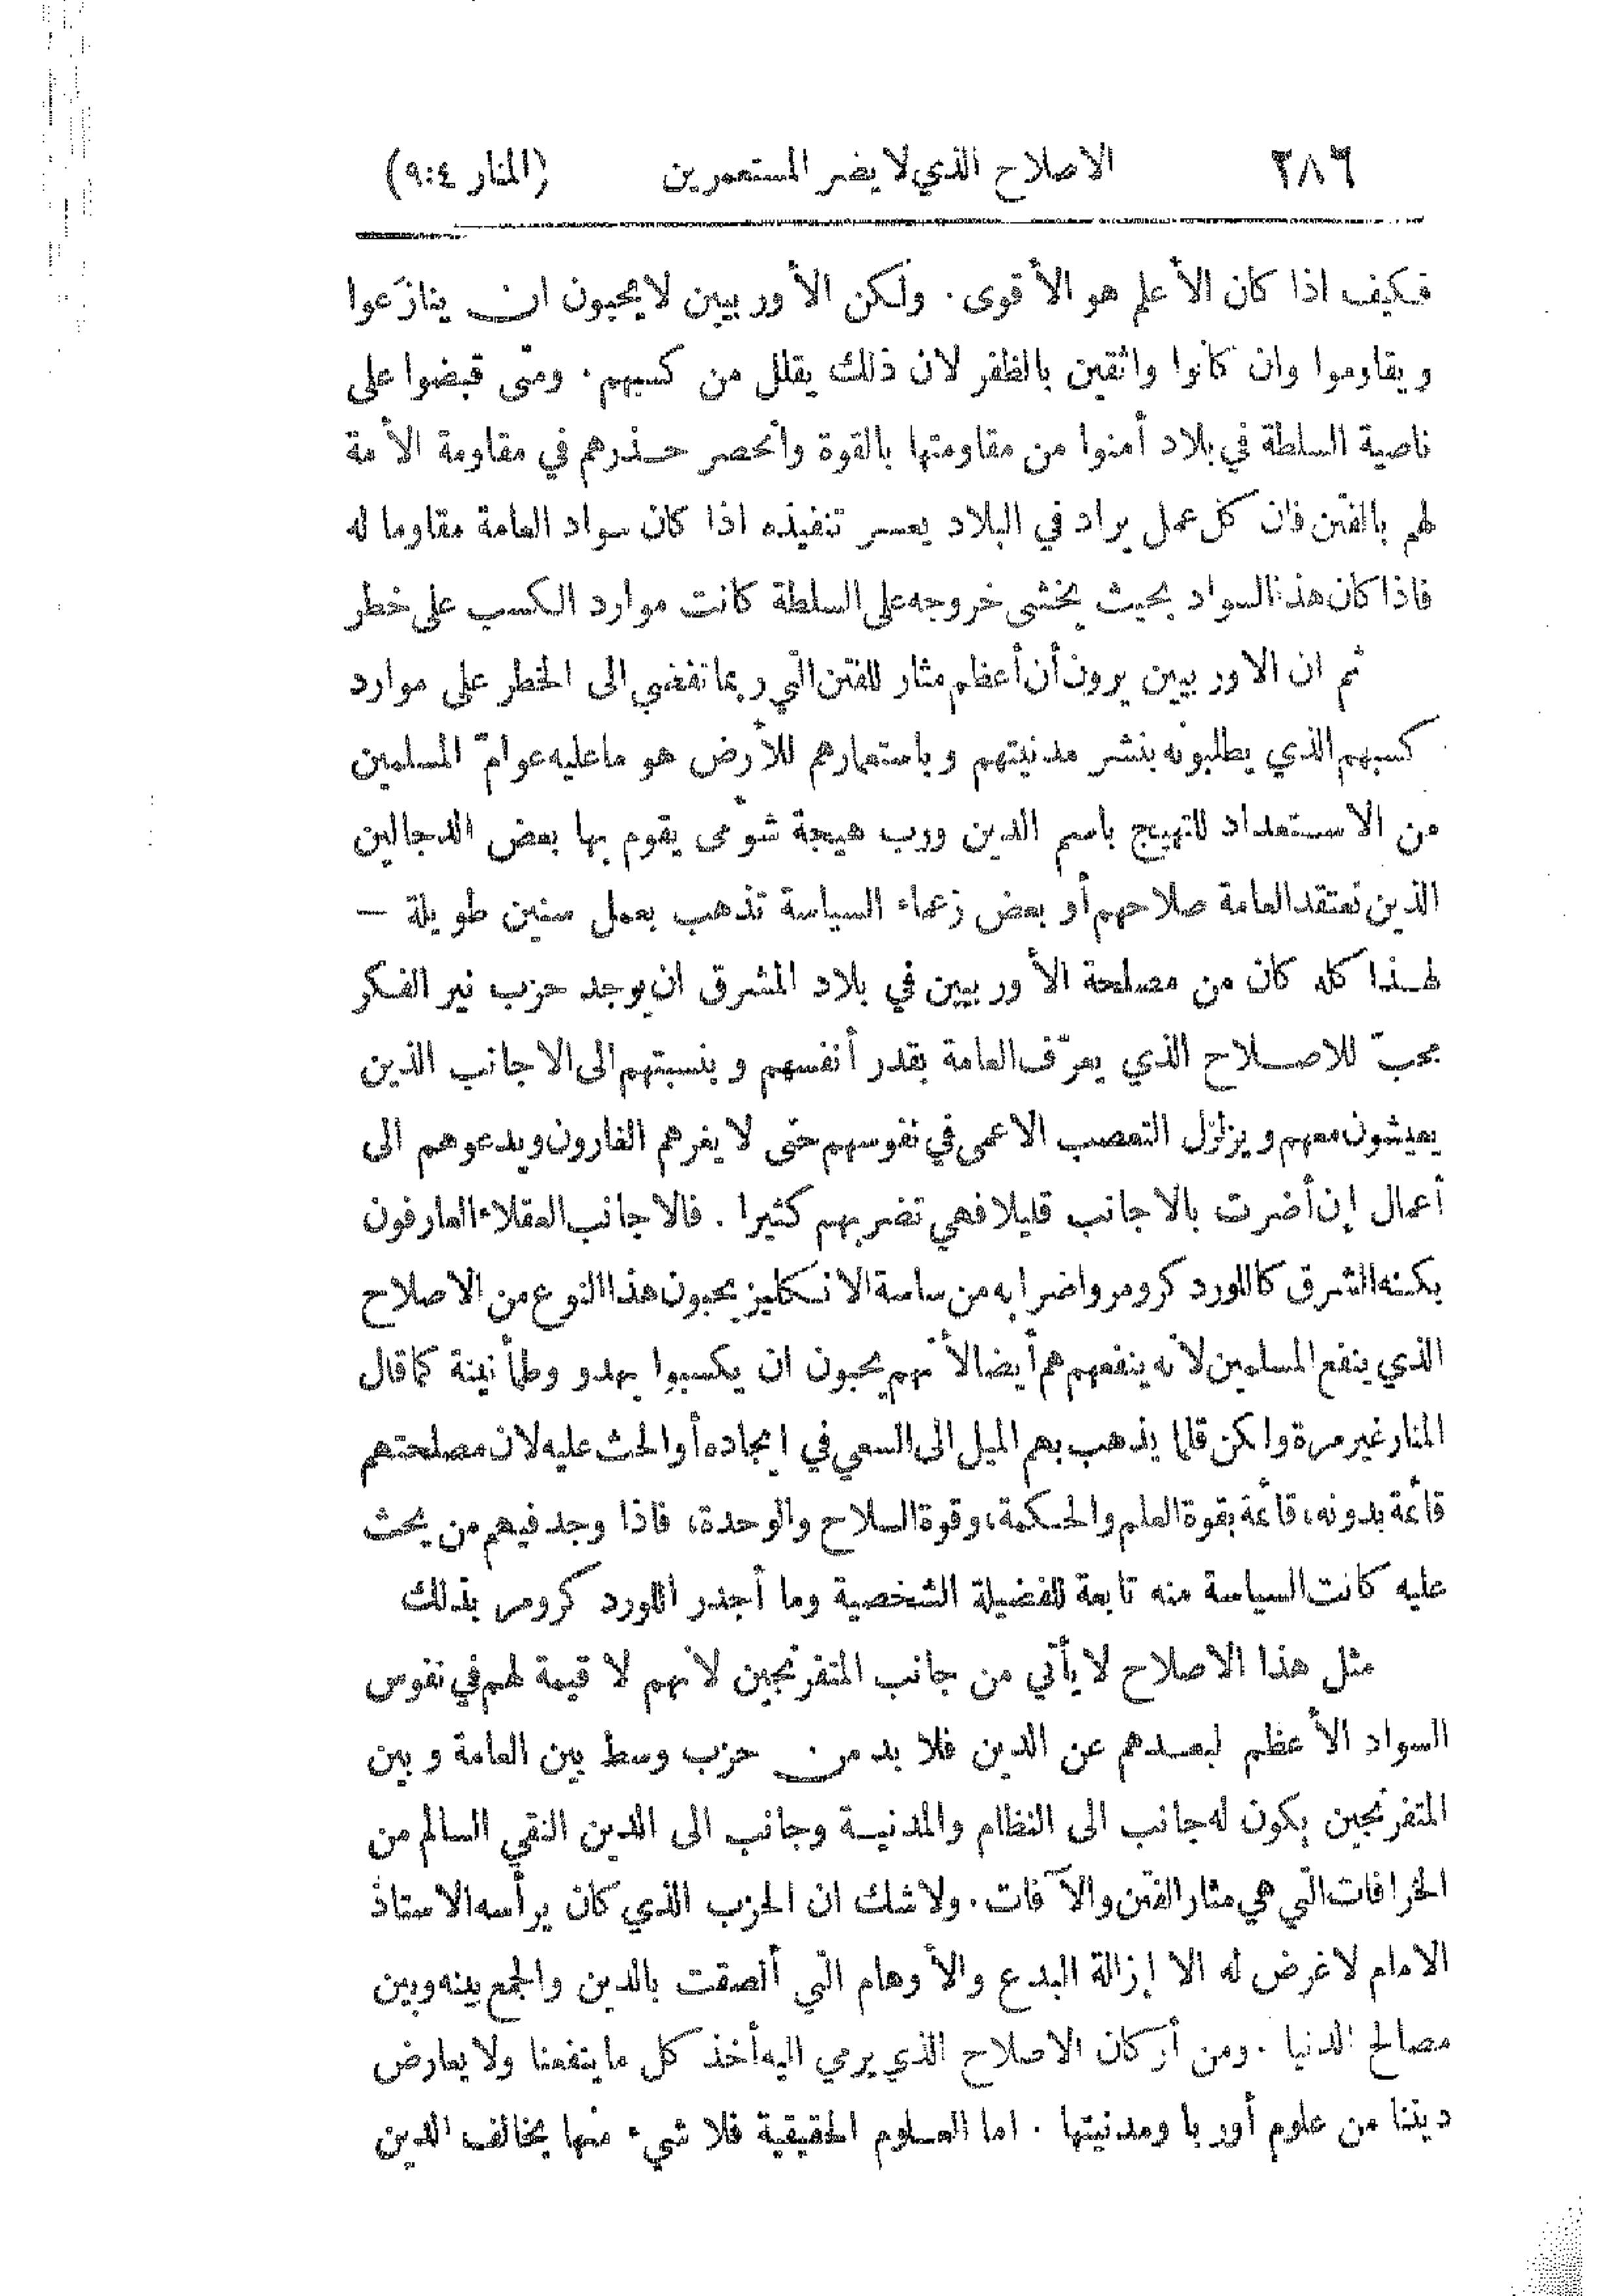 ٢٨٦ الاصلاح الذي لا يضر المستعمرين (المنار ٩:٤)
فكيف اذا كان الأعلم هو الأقوى . ولكن الأوربيين لا يحبون ان ينازَعوا
ويقاوموا وان كانوا واثقين بالظفر لان ذلك يقلل من كسبهم . ومتى قبضوا على
ناصية السلطة في بلاد أمنوا من مقاومتها بالقوة وانحصر حذرهم في مقاومة الأمة
لهم بالفتن فان كل عمل يراد في البلاد يعسر تنفيذه اذا كان سواد العامة مقاوما له
فاذا كان هذا السواد بحيث يخشى خروجه على السلطة كانت موارد الكسب على خطر
ثم ان الاوربيين يرون أن أعظم مثار للفتن التي ربما تفضي الى الخطر على موارد
كسبهم الذي يطلبونه بنشر مدنيتهم وباستعمارهم للأرض هو ما عليه عوامّ المسلمين
من الاستعداد للتهيج باسم الدين ورب هيجة شؤمى يقوم بها بعض الدجالين
الذين تعتقد العامة صلاحهم أو بعض زعماء السياسة تذهب بعمل سنين طويلة —
لهذا كله كان من مصلحة الأوربيين في بلاد المشرق ان يوجد حزب نير الفكر
محبّ للاصلاح الذي يعرّف العامة بقدر أنفسهم وبنسبتهم الى الاجانب الذين
يعيشون معهم ويزلزل التعصب الاعمى في نفوسهم حتى لا يغرهم الغارون ويدعوهم الى
أعمال إن أضرت بالاجانب قليلا فهي تضر بهم كثيرا . فالاجانب العقلاء العارفون
بكنه الشرق كاللورد كرومر واضرابه من ساسة الانكليز يحبون هذا النوع من الاصلاح
الذي ينفع المسلمين لانه ينفعهم هم أيضا لأنهم يحبون ان يكسبوا بهدو وطمأنينة كما قال
المنار غير مرة ولكن قلما يذهب بهم الميل الى السعي في ايجاده أو الحث عليه لان مصلحتهم
قائمة بدونه، قائمة بقوة العلم والحكمة، وقوة السلاح والوحدة، فاذا وجد فيهم من يحث
عليه كانت السياسة منه تابعة للفضيلة الشخصية وما أجدر اللورد كرومر بذلك
مثل هذا الاصلاح لا يأتي من جانب المتفرنجين لانهم لا قيمة لهم في نفوس
السواد الأعظم لبعدهم عن الدين فلا بد من حزب وسط بين العامة وبين
المتفرنجين يكون له جانب الى النظام والمدنية وجانب الى الدين النقي السالم من
الخرافات التي هي مثار الفتن والآفات . ولا شك ان الحزب الذي كان يرأسه الاستاذ
الامام لا غرض له الا إزالة البدع والأوهام التي ألصقت بالدين والجمع بينه وبين
مصالح الدنيا . ومن أركان الاصلاح الذي يرمي اليه أخذ كل ما ينفعنا ولا يعارض
ديننا من علوم أوربا ومدنيتها . اما العلوم الحقيقية فلا شيء منها يخالف الدين